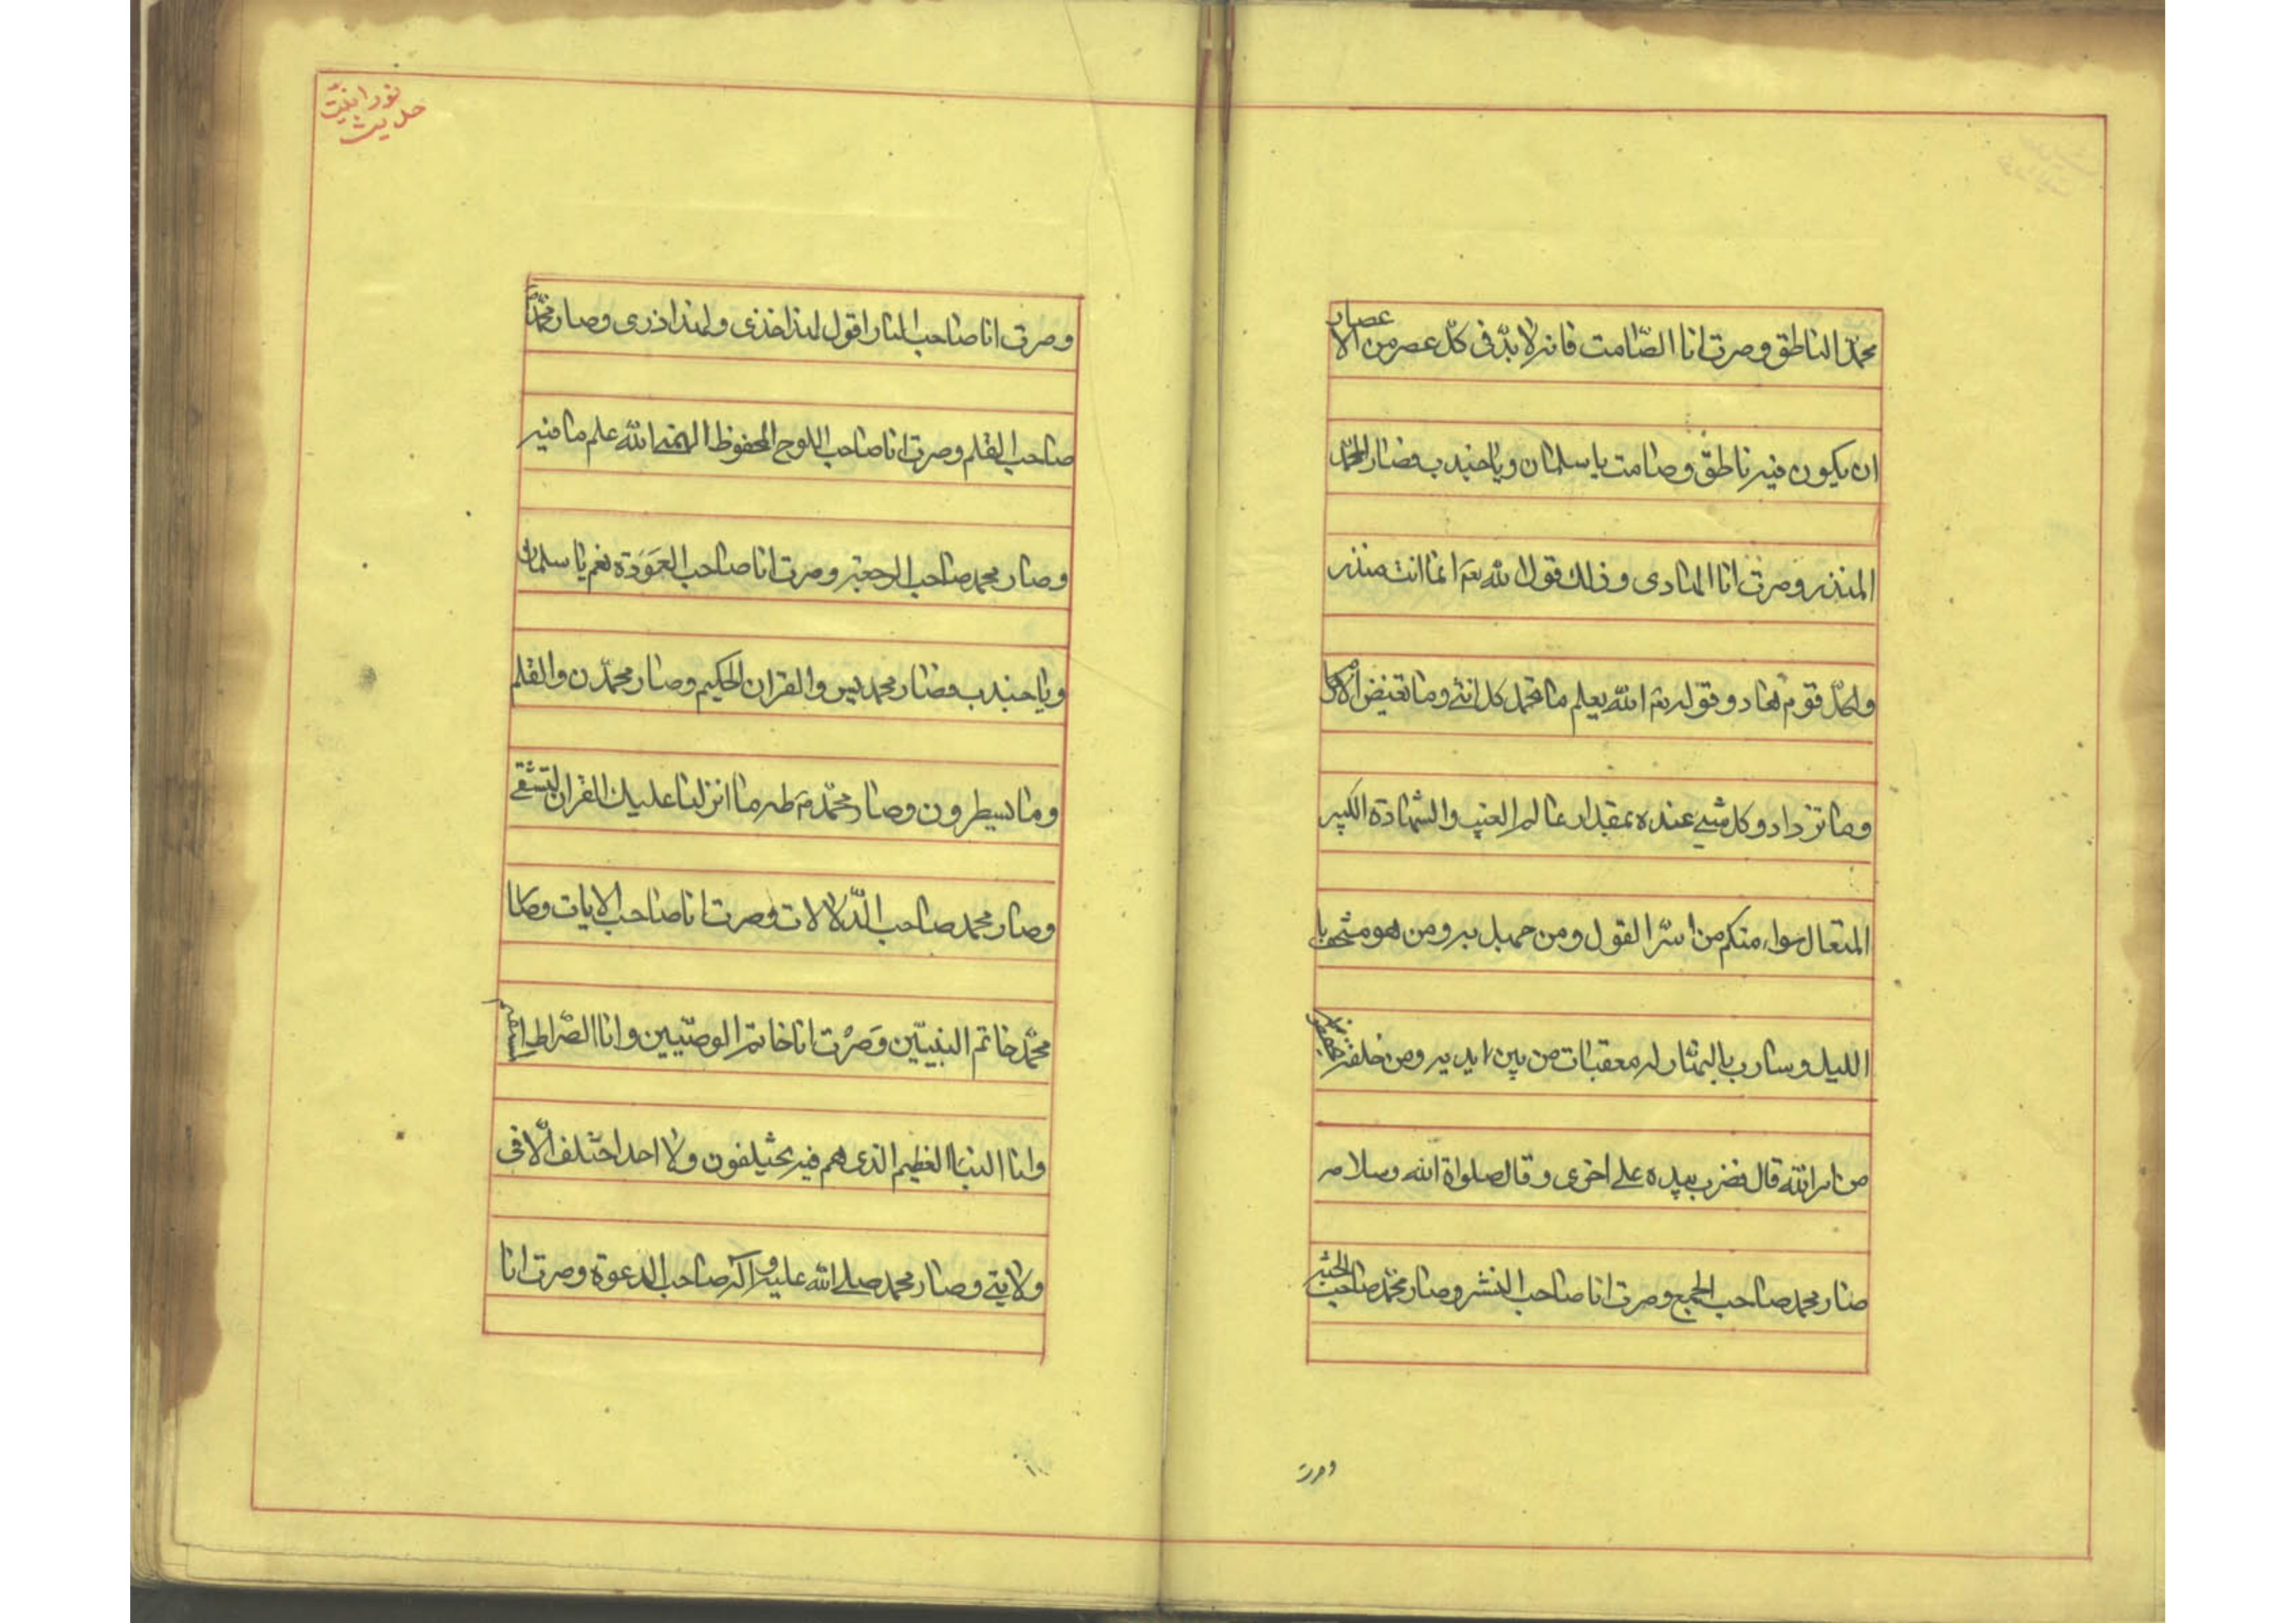 محمّد الناطق وصرت انا الصّامت فانه لابدّ فی کلّ عصر من الاعصار
ان یکون فیه ناطق وصامت یا سلمان ویا جندب فصار محمّد
المنذر وصرت انا الهادی وذلك قول الله تعم انما انت منذر
ولکلّ قوم هاد وقوله تعم الله یعلم ما تحمل کل انثی وما تغیض الارحام
وما تزداد وکل شیئ عنده بمقدار عالم الغیب والشهادة الکبیر
المتعال سواء منکم من اسرّ القول ومن جهر به ومن هو مستخف با
اللیل وسارب بالنهار له معقبات من بین ایدیه ومن خلفه یحفظونه
من امر الله قال فضرب بیده علی اخری وقال صلواة الله وسلامه
صار محمد صاحب الجمع وصرت انا صاحب النشر وصار محمّد صاحب الجنّة
وصرت
نورانیت
حدیث
وصرت انا صاحب النار اقول لهذا خذی ولهذا ذری وصار محمّد
صاحب القلم وصرت انا صاحب اللوح المحفوظ الهمنی الله علم ما فیه
وصار محمد صاحب الرجعة وصرت انا صاحب العَوَدة نعم یا سلمان
ویا جندب فصار محمد یس والقران الحکیم وصار محمّد ن والقلم
وما یسطرون وصار محمّد طه ما انزلنا علیك القران لتشقی
وصار محمد صاحب الدّلالات وصرت انا صاحب الایات وصار
محمّد خاتم النبیّین وَصرْت انا خاتم الوصّیین وانا الصّراط المستقیم
وانا النباا العظیم الذی هم فیه یختلفون ولا احد اختلف الّا فی
ولایتی وصار محمد صلی الله علیه و آله صاحب الدعوة وصرت انا